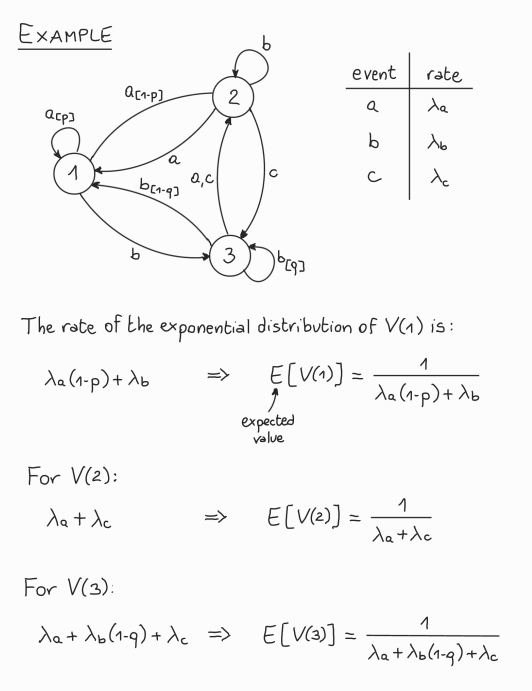 EXAMPLE
b
a[1-p]
2
a[p]
1
a
a,c
c
b[1-q]
b
3
b[q]
event rate
a λa
b λb
c λc
The rate of the exponential distribution of V(1) is:
λa(1-p)+λb ⇒ E[V(1)] = 1 / λa(1-p)+λb
expected
value
For V(2):
λa+λc ⇒ E[V(2)] = 1 / λa+λc
For V(3):
λa+λb(1-q)+λc ⇒ E[V(3)] = 1 / λa+λb(1-q)+λc